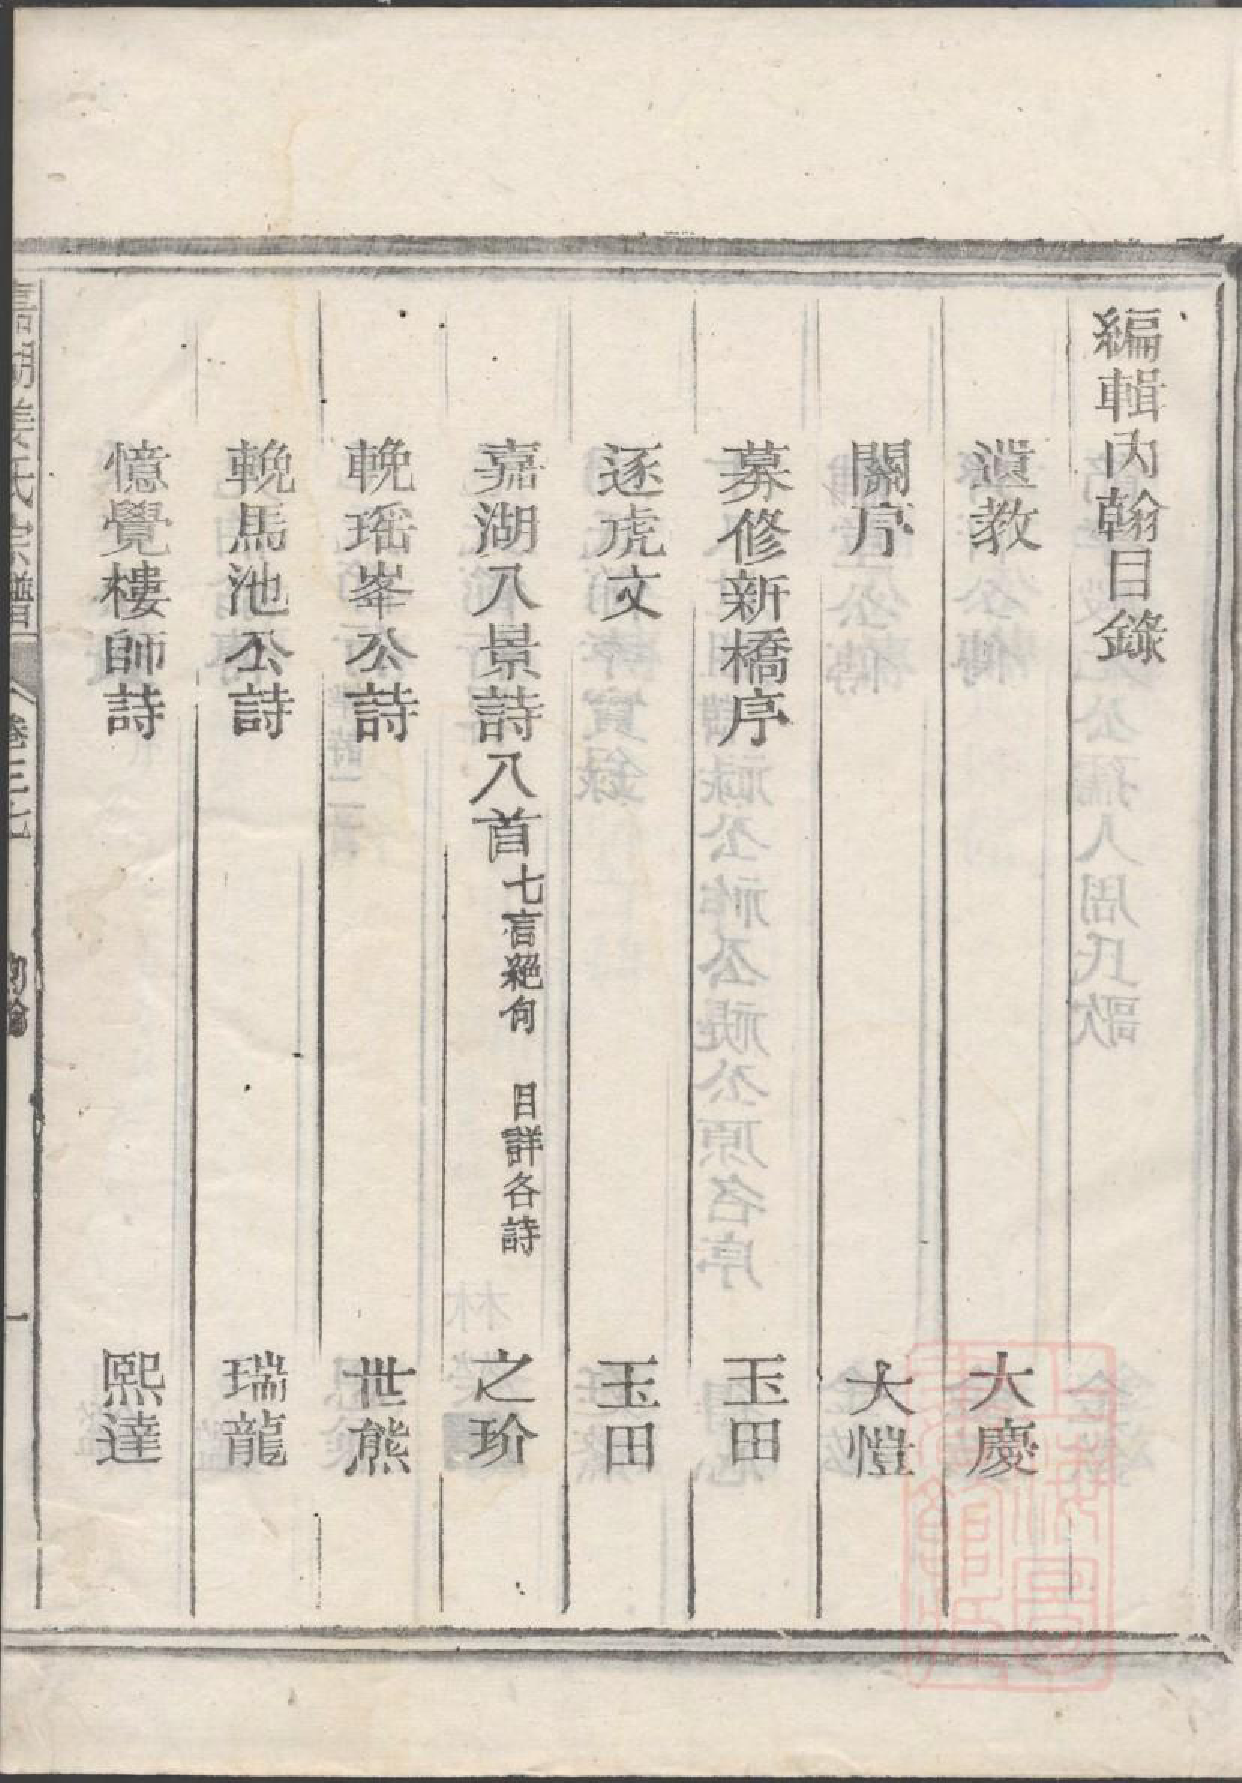 編輯內翰目錄
遺教 大慶
關序 大愷
募修新橋序 玉田
逐虎文 玉田
嘉湖八景詩八首 七言絕句 目詳各詩 之玠
輓瑶峯公詩 世熊
輓馬池公詩 瑞龍
憶覺樓師詩 熙達
嘉湖姜氏宗譜 卷三七 內翰 一